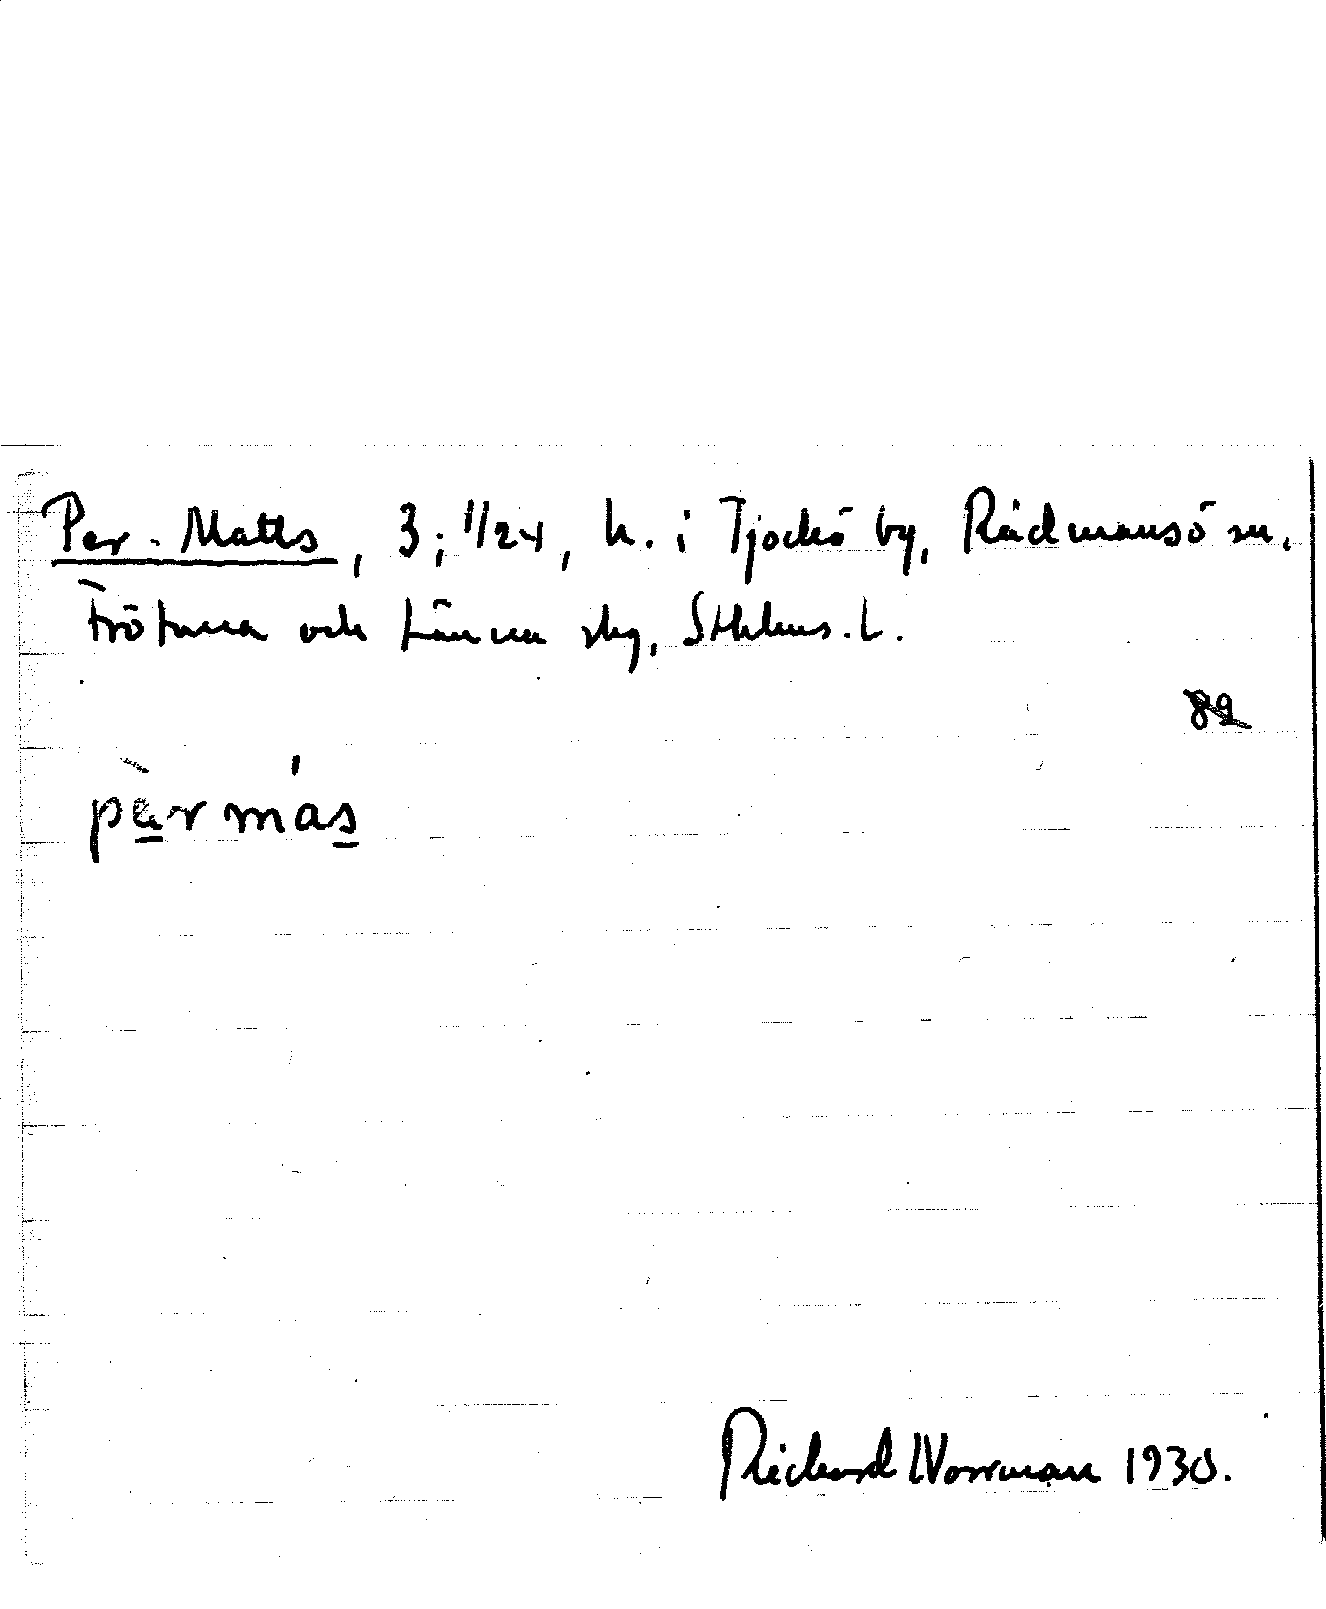 Per-Matts, 3; 1/24, h. i Tjockö by, Rådmansö sn,
Frötuna och Länna skg, Sthlms. L.
82
pèr más
Richard Norrman 1930.